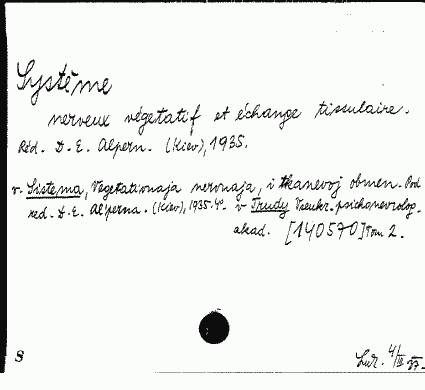 Système
nerveux végetatif et échange tissulaire.
Réd. D. E. Alpern. (Kiev), 1935.
v. Sistema, Vegetativnaja nervnaja, i tkanevoj obmen. Pod
red. D. E. Al'perna. (Kiev), 1935. 4º. v Trudy Vseukr. psichonevrolog.
akad. [140570] Tom 2.
8 Lur. 4/III 37.